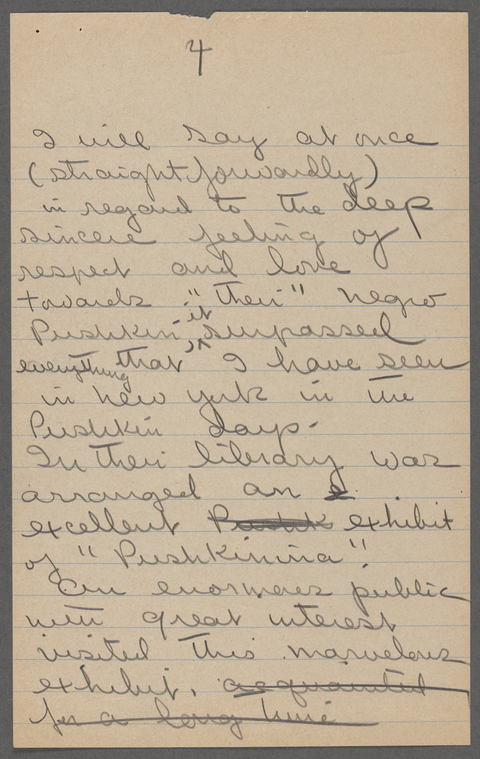 4
I will say at once
(straightforwardly)
in regard to the deep
sincere feeling of
respect and love
towards "their" negro
Pushkin, it surpassed
everything that I have seen
in New York in the
Pushkin days.
In their library was
arranged an e
excellent Pushk exhibit
of "Pushkinina".
An enormous public
with great interest
visited this marvelous
exhibit. acquainted
for a long time